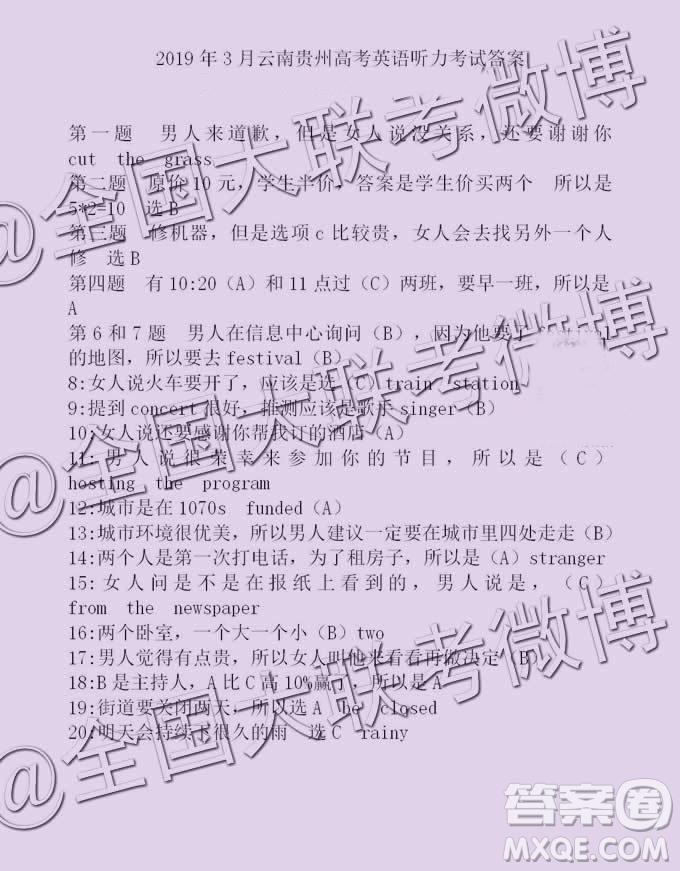 2019 年 3 月云南贵州高考英语听力考试答案
第一题 男人来道歉，但是女人说没关系，还要谢谢你
cut the grass
第二题 原价 10 元，学生半价，答案是学生价买两个 所以是
5*2=10 选 B
第三题 修机器，但是选项 c 比较贵，女人会去找另外一个人
修 选 B
第四题 有 10:20（A）和 11 点过（C）两班，要早一班，所以是
A
第 6 和 7 题 男人在信息中心询问（B），因为他要了
的地图，所以要去 festival（B）
8:女人说火车要开了，应该是选（C）train station
9:提到 concert 很好，推测应该是歌手 singer（B）
10:女人说还要感谢你帮我订的酒店（A）
11:男人说很荣幸来参加你的节目，所以是（C）
hosting the program
12:城市是在 1070s funded（A）
13:城市环境很优美，所以男人建议一定要在城市里四处走走（B）
14:两个人是第一次打电话，为了租房子，所以是（A）stranger
15:女人问是不是在报纸上看到的，男人说是，（C）
from the newspaper
16:两个卧室，一个大一个小（B）two
17:男人觉得有点贵，所以女人叫他来看看再做决定（B）
18:B 是主持人，A 比 C 高 10%赢了，所以是 A
19:街道要关闭两天，所以选 A be closed
20:明天会持续下很久的雨 选 C rainy
@全国大联考微博
@全国大联考微博
@全国大联考微博
答案卷
MXQE.COM